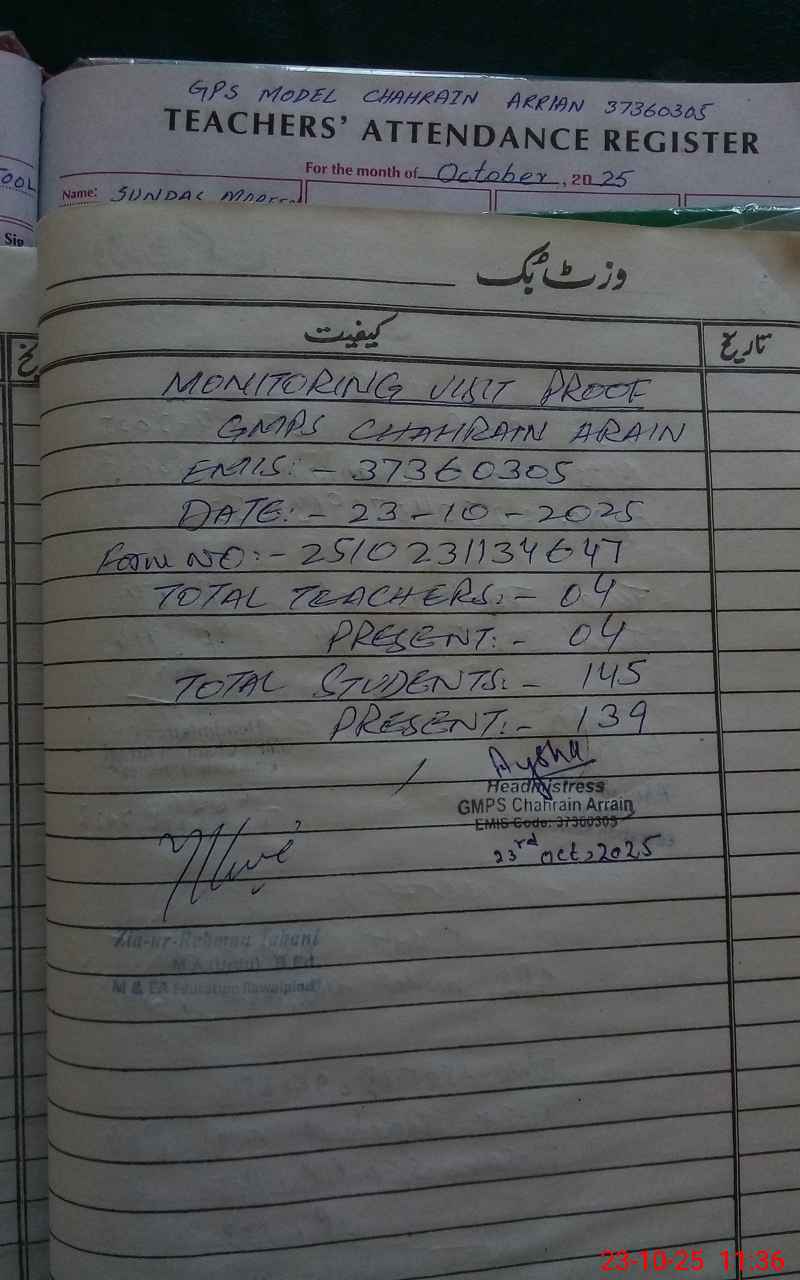 GPS MODEL CHAHRAIN ARRIAN 37360305
TEACHERS' ATTENDANCE REGISTER
For the month of October, 2025
Name: SUNDAS
TOOL
Sig
وزٹ بک
کیفیت
تاریخ
MONITORING VISIT PROOF
GMPS CHAHRAIN ARAIN
EMIS:- 37360305
DATE:- 23-10-2025
Form NO:- 2510231134647
TOTAL TEACHERS:- 04
PRESENT:- 04
TOTAL STUDENTS:- 145
PRESENT:- 139
Aysha
Headmistress
GMPS Chahrain Arrain
EMIS Code: 37360305
23rd oct, 2025
Zia-ur-Rehman
M.A (Urdu) B.Ed
M & EA Education Rawalpindi
23-10-25 11:36